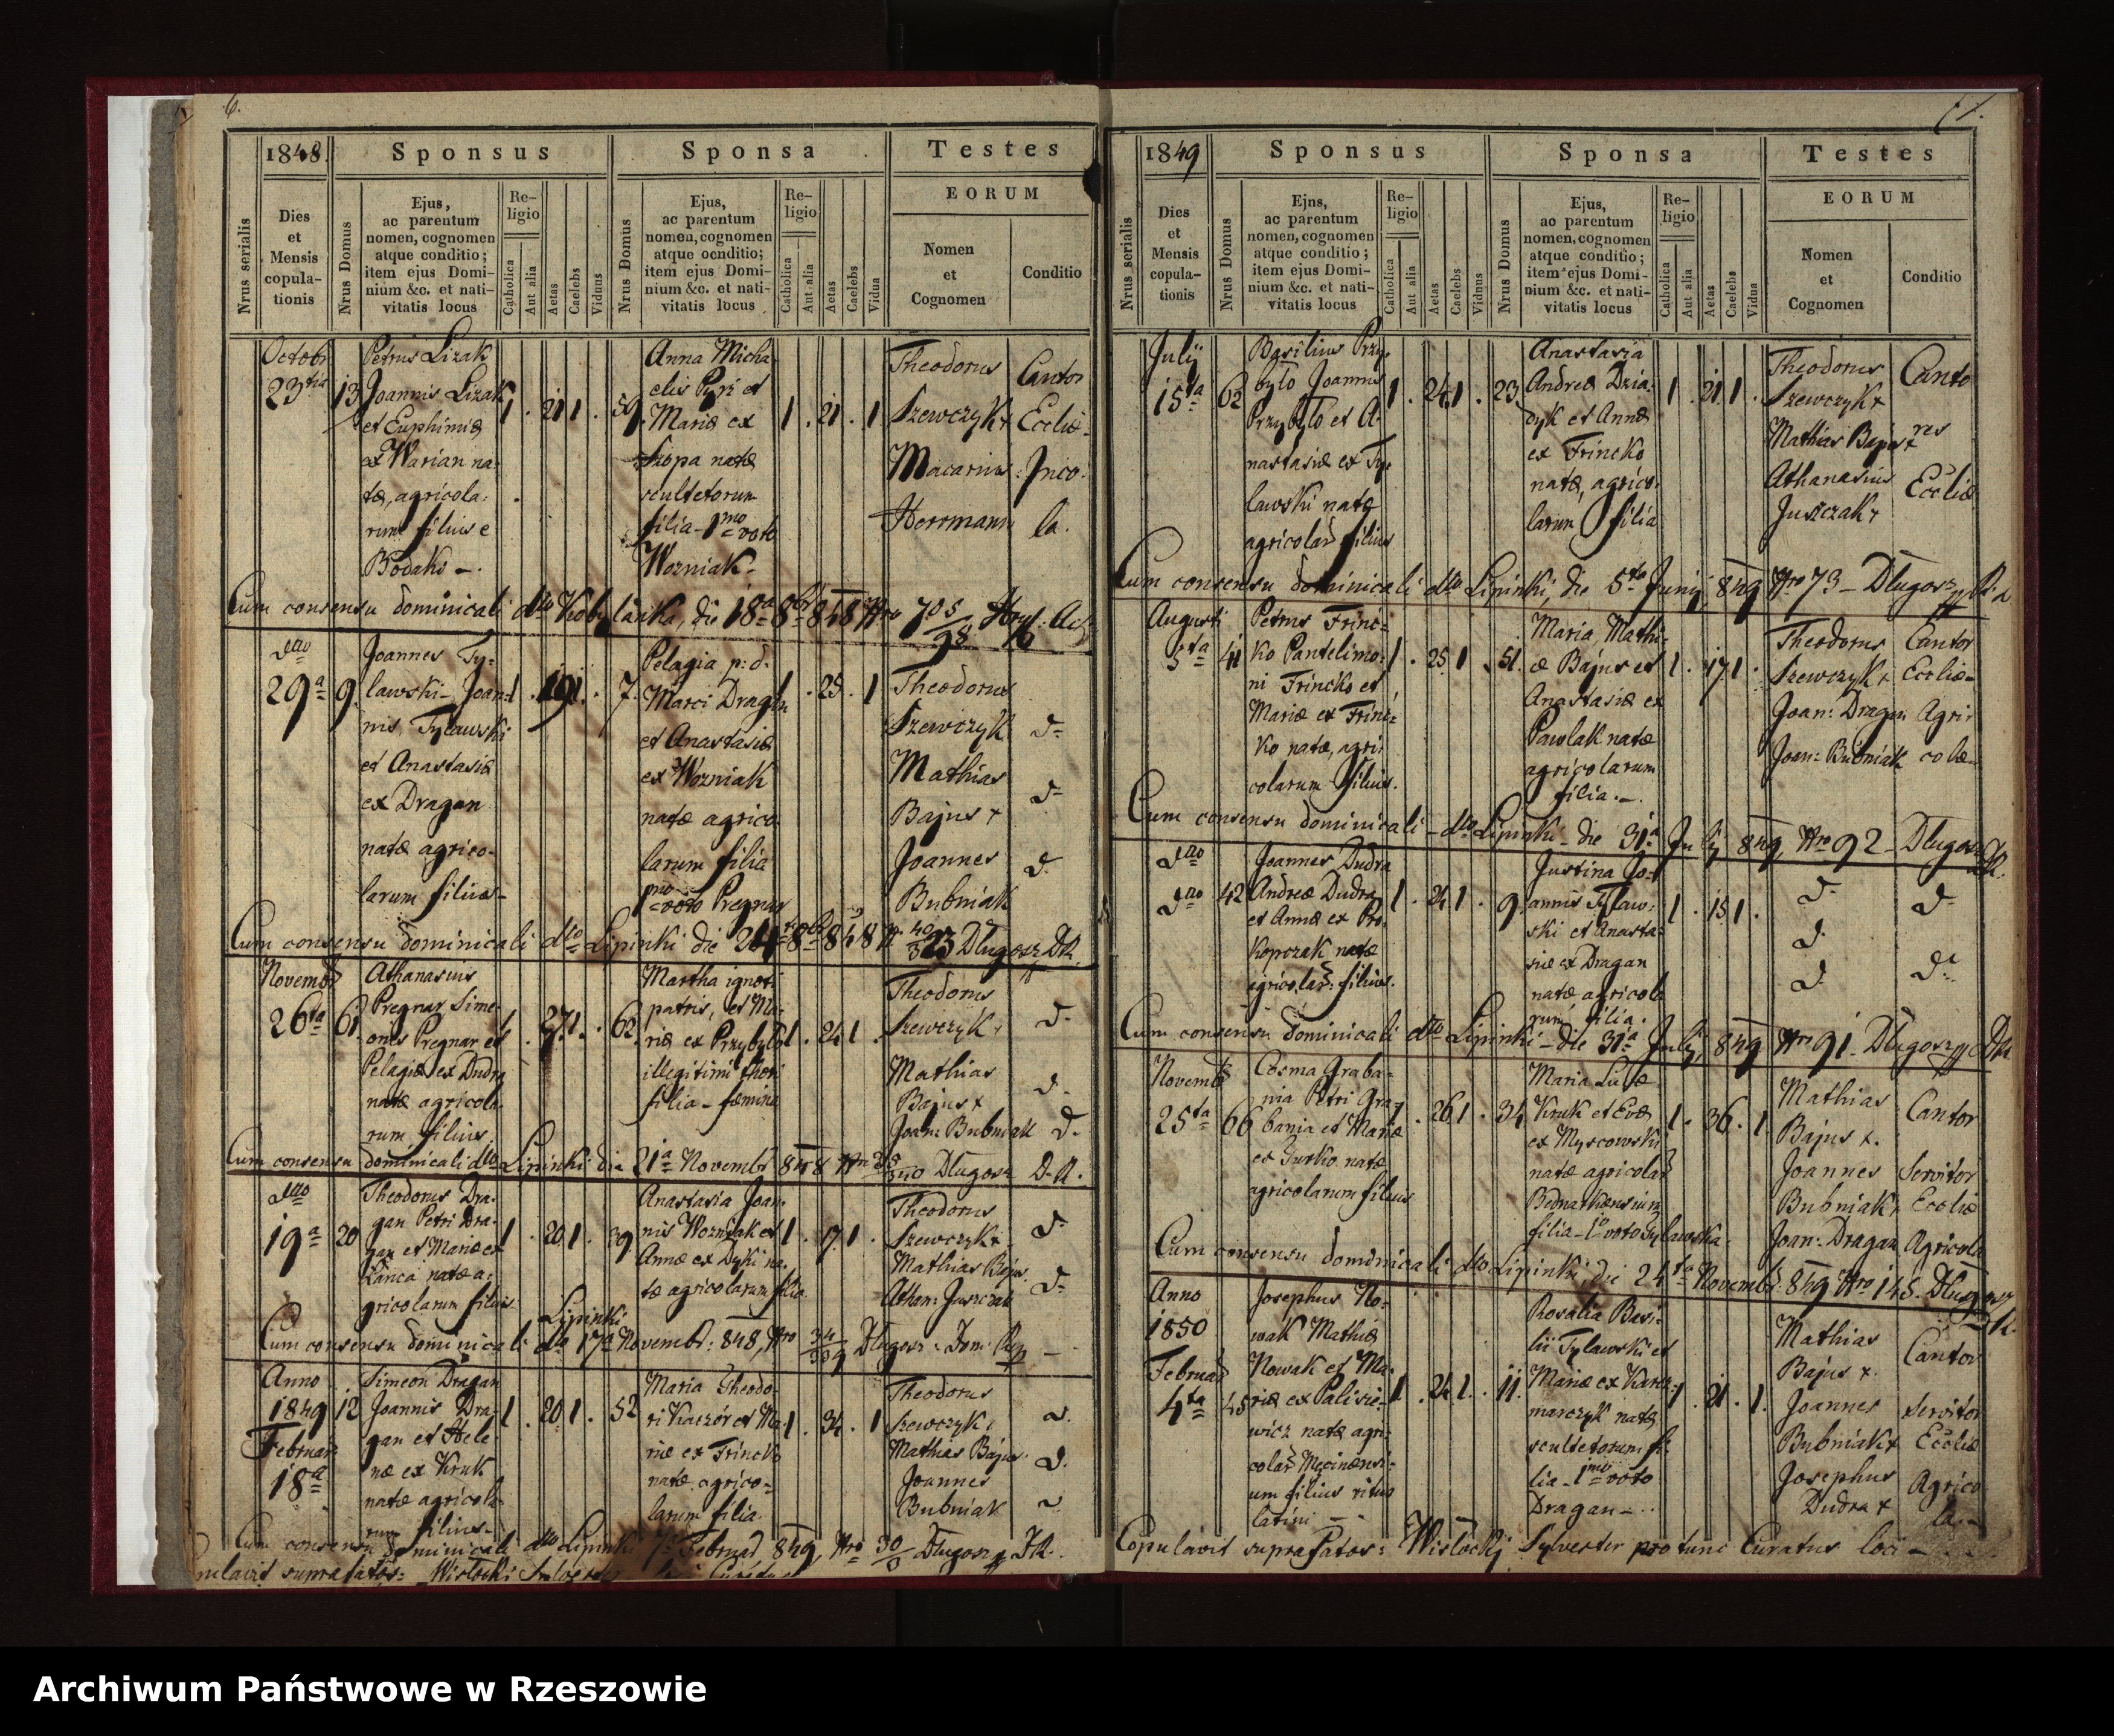 6.
1848.
Sponsus
Sponsa
Testes
Nrus serialis
Dies
et
Mensis
copula-
tionis
Nrus Domus
Ejus,
ac parentum
nomen, cognomen
atque conditio;
item ejus Domi-
nium &c. et nati-
vitatis locus
Re-
ligio
Catholica
Aut alia
Aetas
Caelebs
Viduus
Nrus Domus
Ejus,
ac parentum
nomen, cognomen
atque conditio;
item ejus Domi-
nium &c. et nati-
vitatis locus
Re-
ligio
Catholica
Aut alia
Aetas
Caelebs
Vidua
EORUM
Nomen
et
Cognomen
Conditio
Octobr
23tia
13
Petrus Lizak
Joannis Lizak
et Euphimiæ
ex Warian na-
tæ, agricola-
rum filius e
Bodaki -.
1 . 21 1 .
59.
Anna Micha-
elis Pyri et
Mariæ ex
Szopa natæ
scultetorum
filia - 1mo voto
Wozniak -
1 . 21 . 1
Theodorus
Szewczyk +
Macarius
Herrmann
Cantor
Eccliæ.
Inco-
la.
Cum consensu dominicali dtto Kobylanka, die 18a 8br 848 Nro
dtto
29a
9.
Joannes Ty-
lawski - Joan-
nis Tylawski
et Anastasiæ
ex Dragan
natæ agrico-
larum filius -
1 . 19 1 .
7.
Pelagia p: d.
Marci Dragan
et Anastasiæ
ex Wozniak
natæ agrico-
larum filia
1mo voto Pregnar
1 . 25 . 1
Theodorus
Szewczyk
Mathias
Bajus +
Joannes
Bubniak
d-
d-
d.
Cum consensu dominicali dtto Lipinki die 24 8br 848 Dlugosz DR.
Novembr
26ta
61.
Athanasius
Pregnar Sime-
onis Pregnar et
Pelagiæ ex Dudra
natæ agricola-
rum filius
. 27 1 .
62.
Martha ignoti
patris, et Ma-
riæ ex Przybylo
illegitimi thori
filia - fæmina
1 . 24 1 .
Theodorus
Szewczyk +
Mathias
Bajus +
Joan: Bubniak
d-
d-
d-
Cum consensu dominicali dtto Lipinki die 21a Novembr 848 Dlugosz D. R.
dtto
19a
20
Theodorus Dra-
gan Petri Dra-
gan et Mariæ ex
Kanca natæ a-
gricolarum filius.
1 . 20 1 .
39
Anastasia Joan-
nis Wozniak et
Annæ ex Dyki na-
tæ agricolarum filia
1 . 17 1 .
Theodorus
Szewczyk +
Mathias Bajus
Athan: Juszczak
d-
d-
Lipinki
Cum consensu dominicali dtto 17a Novembr: 848, Nro 34/309 Dlugosz - Dom: Rep -
Anno
1849
Februar
18a
12
Simeon Dragan
Joannis Dra-
gan et Hele-
næ ex Kruk
natæ agricola-
rum filius -
1 . 20 1 .
52
Maria Theodo-
ri Kaczór et Ma-
riæ ex Frincko
natæ agrico-
larum filia.
1 . 34 . 1
Theodorus
Szewczyk +
Mathias Bajus
Joannes
Bubniak
d.
d.
Cum consensu dominicali dtto Lipinki 7a Februar 849, Nro Dlugosz DR.
supra fatos: Wislocki
1849
Sponsus
Sponsa
Testes
Nrus serialis
Dies
et
Mensis
copula-
tionis
Nrus Domus
Ejns,
ac parentum
nomen, cognomen
atque conditio;
item ejus Domi-
nium &c. et nati-
vitatis locus
Re-
ligio
Catholica
Aut alia
Aetas
Caelebs
Viduus
Nrus Domus
Ejus,
ac parentum
nomen, cognomen
atque conditio;
item ejus Domi-
nium &c. et nati-
vitatis locus
Re-
ligio
Catholica
Aut alia
Aetas
Caelebs
Vidua
EORUM
Nomen
et
Cognomen
Conditio
Julÿ
15ta
62
Basilius Przy-
bylo Joannis
Przybylo et A-
nastasiæ ex Ty-
lawski natæ
agricolar filius
1 . 24 1 .
23.
Anastasia
Andreæ Dzia-
dyk et Annæ
ex Frincko
natæ, agrico-
larum filia
1 . 21 1 .
Theodorus
Szewczyk +
Mathias Bajus +
Athanasius
Juszczak +
Canto
res
Eccliæ
Cum consensu dominicali dtto Lipinki, die 5ta Junÿ 849 Nro 73 - Dlugosz
Augusti
5ta
41
Petrus Frinc-
ko Pantelimo-
ni Frincko et
Mariæ ex Frinc-
ko natæ, agri-
colarum filius.
1 . 25 1 .
51.
Maria Mathi-
æ Bajus et
Anastasiæ ex
Pawlak natæ
agricolarum
filia. -.
1 . 17 1 .
Theodorus
Szewczyk +
Joan: Dragan
Joan: Bubniak
Cantor
Eccliæ -
Agri-
colæ -
Cum consensu dominicali - dtto Lipinki - die 31a Julÿ 849, Nro 92 - Dlugosz DR.
dtto
dtto
42
Joannes Dudra
Andreæ Dudra
et Annæ ex Pro-
kopczak natæ
agricolar: filius.
1 . 24 1 .
9.
Justina Jo-
annis Tylaw-
ski et Anasta-
siæ ex Dragan
natæ, agricola-
rum, filia.
1 . 15 1 .
d-
d-
d-
d-
d-
Cum consensu dominicali dtto Lipinki - die 31a Julÿ, 849 Nro 91 - Dlugosz DR
Novembr
25ta
66
Cosma Graba-
nia Petri Gra-
bania et Mariæ
ex Gurko natæ
agricolarum filius
. 26 1 .
34
Maria Lucæ
Kruk et Evæ
ex Myscowski
natæ agricolar
Bednarkænsium
filia - 1o voto Tylawska -
1 . 36 . 1
Mathias
Bajus +.
Joannes
Bubniak +
Joan: Dragan
Cantor
Servitor
Eccliæ
Agricola
Cum consensu dominicali dtto Lipinki, die 24ta Novembr: 849 Nro 145. Dlugosz DR.
Anno
1850
Februar
4ta
45
Josephus No-
wak Mathiæ
Nowak et Ma-
riæ ex Palisie-
wicz natæ agri-
colar Mecinensi-
um filius ritus
latini - -
1 . 24 1 .
11.
Rosalia Basi-
lii Tylawski et
Mariæ ex Karcz-
marczyk natæ
scultetorum fi-
lia - 1mo voto
Dragan -
1 . 21 . 1.
Mathias
Bajus +.
Joannes
Bubniak +
Josephus
Dudra +
Cantor
Servitor
Eccliæ
Agrico
la. -
Copulavit suprafatos: Wislockij Sylvester pro tunc Curatus loci -
Archiwum Państwowe w Rzeszowie